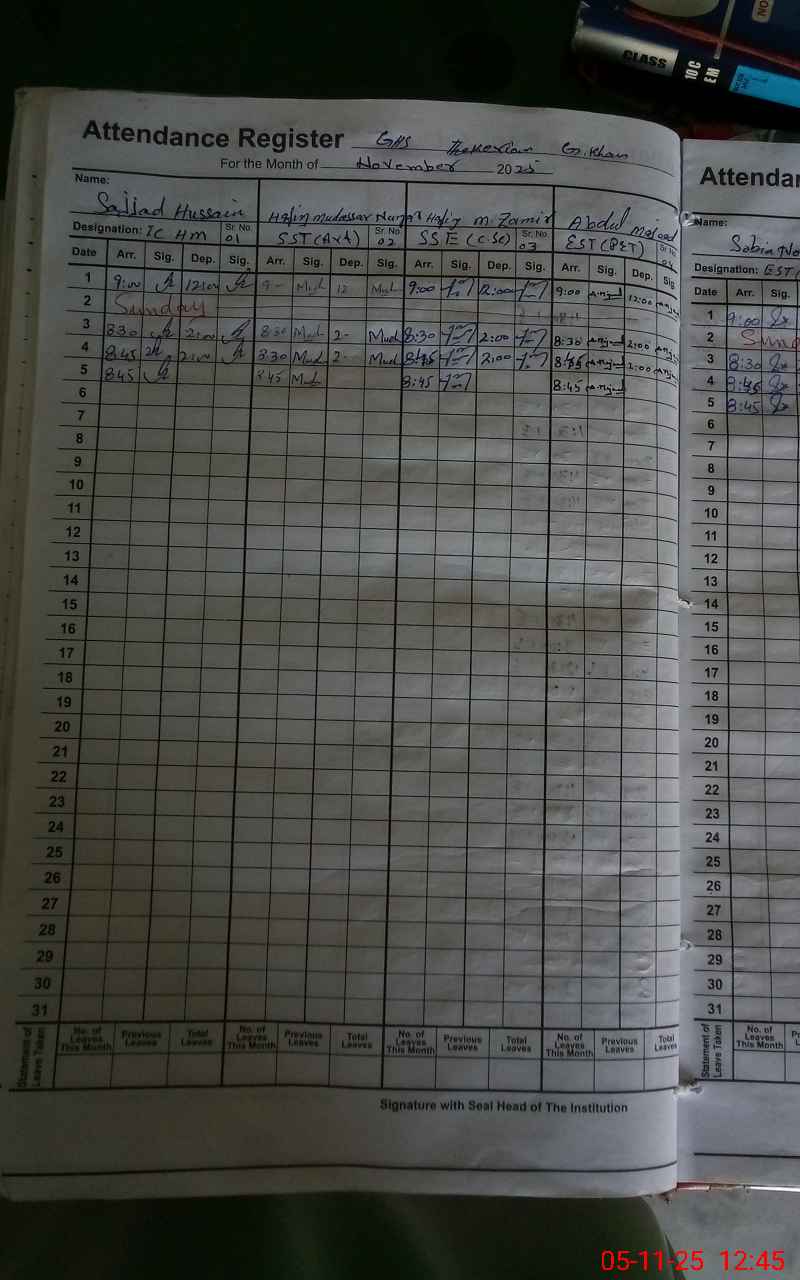 CLASS
10 C
EM
NO
Attendance Register GHS G. Khan
For the Month of November 2025
Name:
Sajjad Hussain Hafiz Mudassar Hafiz M. Zamir Abdul Majeed
Designation: IC HM Sr. No. 01 SST (Art) Sr. No. 02 SSE (C.Sc) Sr. No. 03 EST (PET) Sr. No. 04
Date Arr. Sig. Dep. Sig. Arr. Sig. Dep. Sig. Arr. Sig. Dep. Sig. Arr. Sig. Dep. Sig.
1 9:00 12:00 9- Mud 12 Mud 9:00 12:00 9:00 Amjad 12:00 Amjad
2 Sunday
3 8:30 2:00 8:30 Mud 2- Mud 8:30 2:00 8:30 Amjad 2:00 Amjad
4 8:45 2:00 8:30 Mud 2- Mud 8:45 2:00 8:45 Amjad 2:00 Amjad
5 8:45 8:45 Mud 8:45 8:45 Amjad
6
7
8
9
10
11
12
13
14
15
16
17
18
19
20
21
22
23
24
25
26
27
28
29
30
31
Statement of Leave Taken
No. of Leaves This Month Previous Leaves Total Leaves No. of Leaves This Month Previous Leaves Total Leaves No. of Leaves This Month Previous Leaves Total Leaves No. of Leaves This Month Previous Leaves Total Leaves
Signature with Seal Head of The Institution
Attendan
Name:
Sobia No
Designation: EST (
Date Arr. Sig.
1 9:00
2 Sund
3 8:30
4 8:45
5 8:45
6
7
8
9
10
11
12
13
14
15
16
17
18
19
20
21
22
23
24
25
26
27
28
29
30
31
Statement of Leave Taken
No. of Leaves This Month
05-11-25 12:45